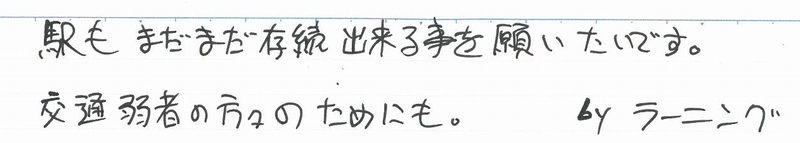 駅も まだまだ存続 出来る事を願いたいです。
交通弱者の方々のためにも。 by ラーニング